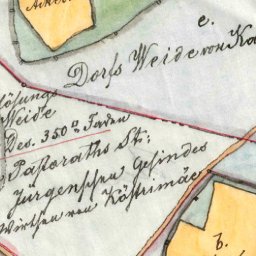 Acker
e.
Dorfs Weide von Ka
lösungs
Weide
Des. 350 □ Faden
Pastoraths St:
Jürgenschen Gesindes
Wirthen von
b.